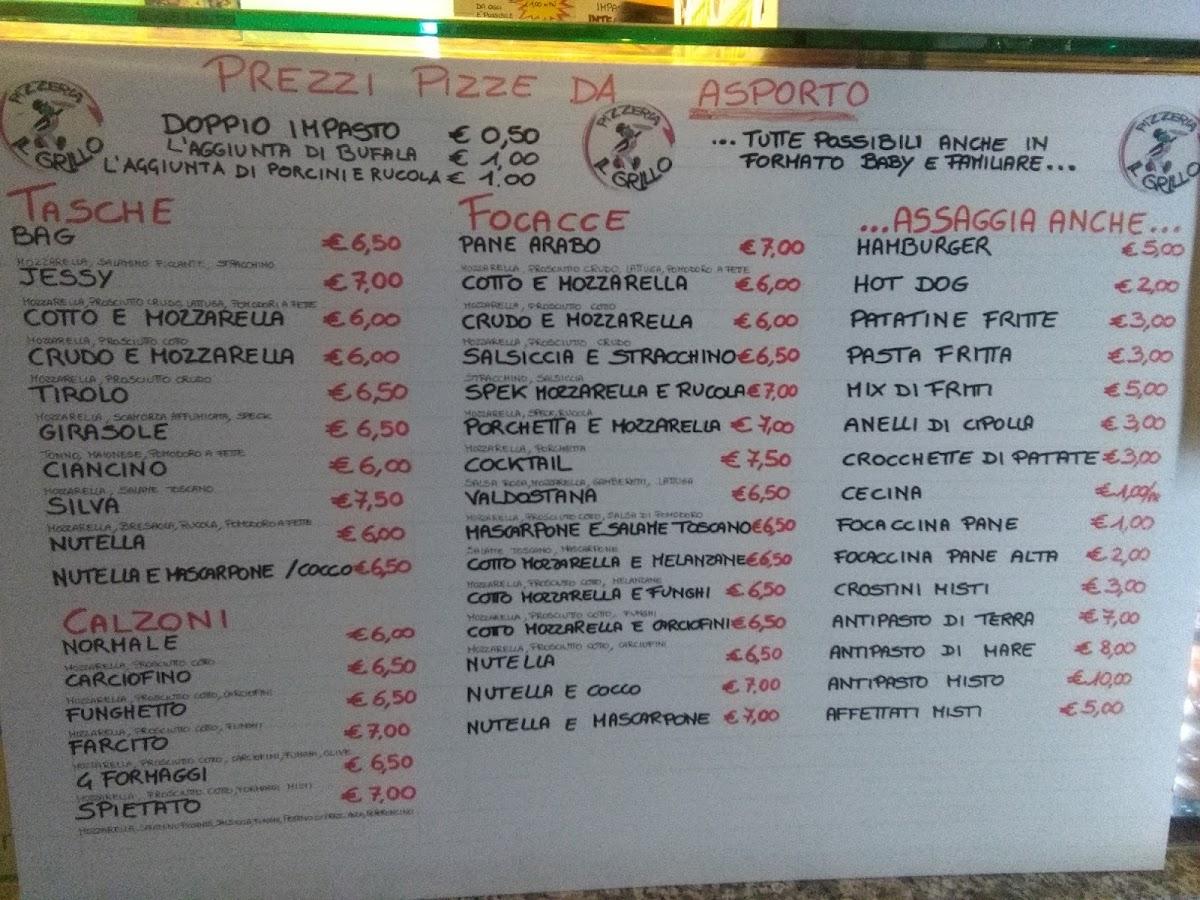 PREZZI PIZZE DA ASPORTO
PIZZERIA IL GRILLO
DOPPIO IMPASTO € 0,50
L'AGGIUNTA DI BUFALA € 1,00
L'AGGIUNTA DI PORCINI E RUCOLA € 1.00
PIZZERIA IL GRILLO
...TUTTE POSSIBILI ANCHE IN
FORMATO BABY E FAMILIARE...
PIZZERIA IL GRILLO
TASCHE
BAG € 6,50
MOZZARELLA, SALAMINO PICCANTE, STRACCHINO
JESSY € 7,00
MOZZARELLA, PROSCIUTTO CRUDO, LATTUGA, POMODORI A FETTE
COTTO E MOZZARELLA € 6,00
MOZZARELLA, PROSCIUTTO COTTO
CRUDO E MOZZARELLA € 6,00
MOZZARELLA, PROSCIUTTO CRUDO
TIROLO € 6,50
MOZZARELLA, SCAMORZA AFFUMICATA, SPECK
GIRASOLE € 6,50
TONNO, MAIONESE, POMODORO A FETTE
CIANCINO € 6,00
MOZZARELLA, SALAME TOSCANO
SILVA € 7,50
MOZZARELLA, BRESAOLA, RUCOLA, POMODORO A FETTE
NUTELLA € 6,00
NUTELLA E MASCARPONE / COCCO € 6,50
CALZONI
NORMALE € 6,00
MOZZARELLA, PROSCIUTTO COTTO
CARCIOFINO € 6,50
MOZZARELLA, PROSCIUTTO COTTO, CARCIOFINI
FUNGHETTO € 6,50
MOZZARELLA, PROSCIUTTO COTTO, FUNGHI
FARCITO € 7,00
MOZZARELLA, PROSCIUTTO COTTO, CARCIOFINI, FUNGHI, OLIVE
4 FORMAGGI € 6,50
MOZZARELLA, PROSCIUTTO COTTO, FORMAGGI MISTI
SPIETATO € 7,00
MOZZARELLA, SALAMINO PICCANTE, SALSICCIA, FUNGHI, PEPERONCINO
FOCACCE
PANE ARABO € 7,00
MOZZARELLA, PROSCIUTTO CRUDO, LATTUGA, POMODORO A FETTE
COTTO E MOZZARELLA € 6,00
MOZZARELLA, PROSCIUTTO COTTO
CRUDO E MOZZARELLA € 6,00
MOZZARELLA, PROSCIUTTO CRUDO
SALSICCIA E STRACCHINO € 6,50
STRACCHINO, SALSICCIA
SPEK MOZZARELLA E RUCOLA € 7,00
MOZZARELLA, SPECK, RUCOLA
PORCHETTA E MOZZARELLA € 7,00
MOZZARELLA, PORCHETTA
COCKTAIL € 7,50
SALSA ROSA, MOZZARELLA, GAMBERETTI, LATTUGA
VALDOSTANA € 6,50
MOZZARELLA, PROSCIUTTO COTTO, SALSA DI POMODORO
MASCARPONE E SALAME TOSCANO € 6,50
SALAME TOSCANO, MASCARPONE
COTTO MOZZARELLA E MELANZANE € 6,50
MOZZARELLA, PROSCIUTTO COTTO, MELANZANE
COTTO MOZZARELLA E FUNGHI € 6,50
MOZZARELLA, PROSCIUTTO COTTO, FUNGHI
COTTO MOZZARELLA E CARCIOFINI € 6,50
MOZZARELLA, PROSCIUTTO COTTO, CARCIOFINI
NUTELLA € 6,50
NUTELLA E COCCO € 7.00
NUTELLA E MASCARPONE € 7,00
...ASSAGGIA ANCHE...
HAMBURGER € 5,00
HOT DOG € 2,00
PATATINE FRITTE € 3,00
PASTA FRITTA € 3,00
MIX DI FRITTI € 5,00
ANELLI DI CIPOLLA € 3,00
CROCCHETTE DI PATATE € 3,00
CECINA € 1,00
FOCACCINA PANE € 1,00
FOCACCINA PANE ALTA € 2,00
CROSTINI MISTI € 3,00
ANTIPASTO DI TERRA € 7,00
ANTIPASTO DI MARE € 8,00
ANTIPASTO MISTO € 10,00
AFFETTATI MISTI € 5,00